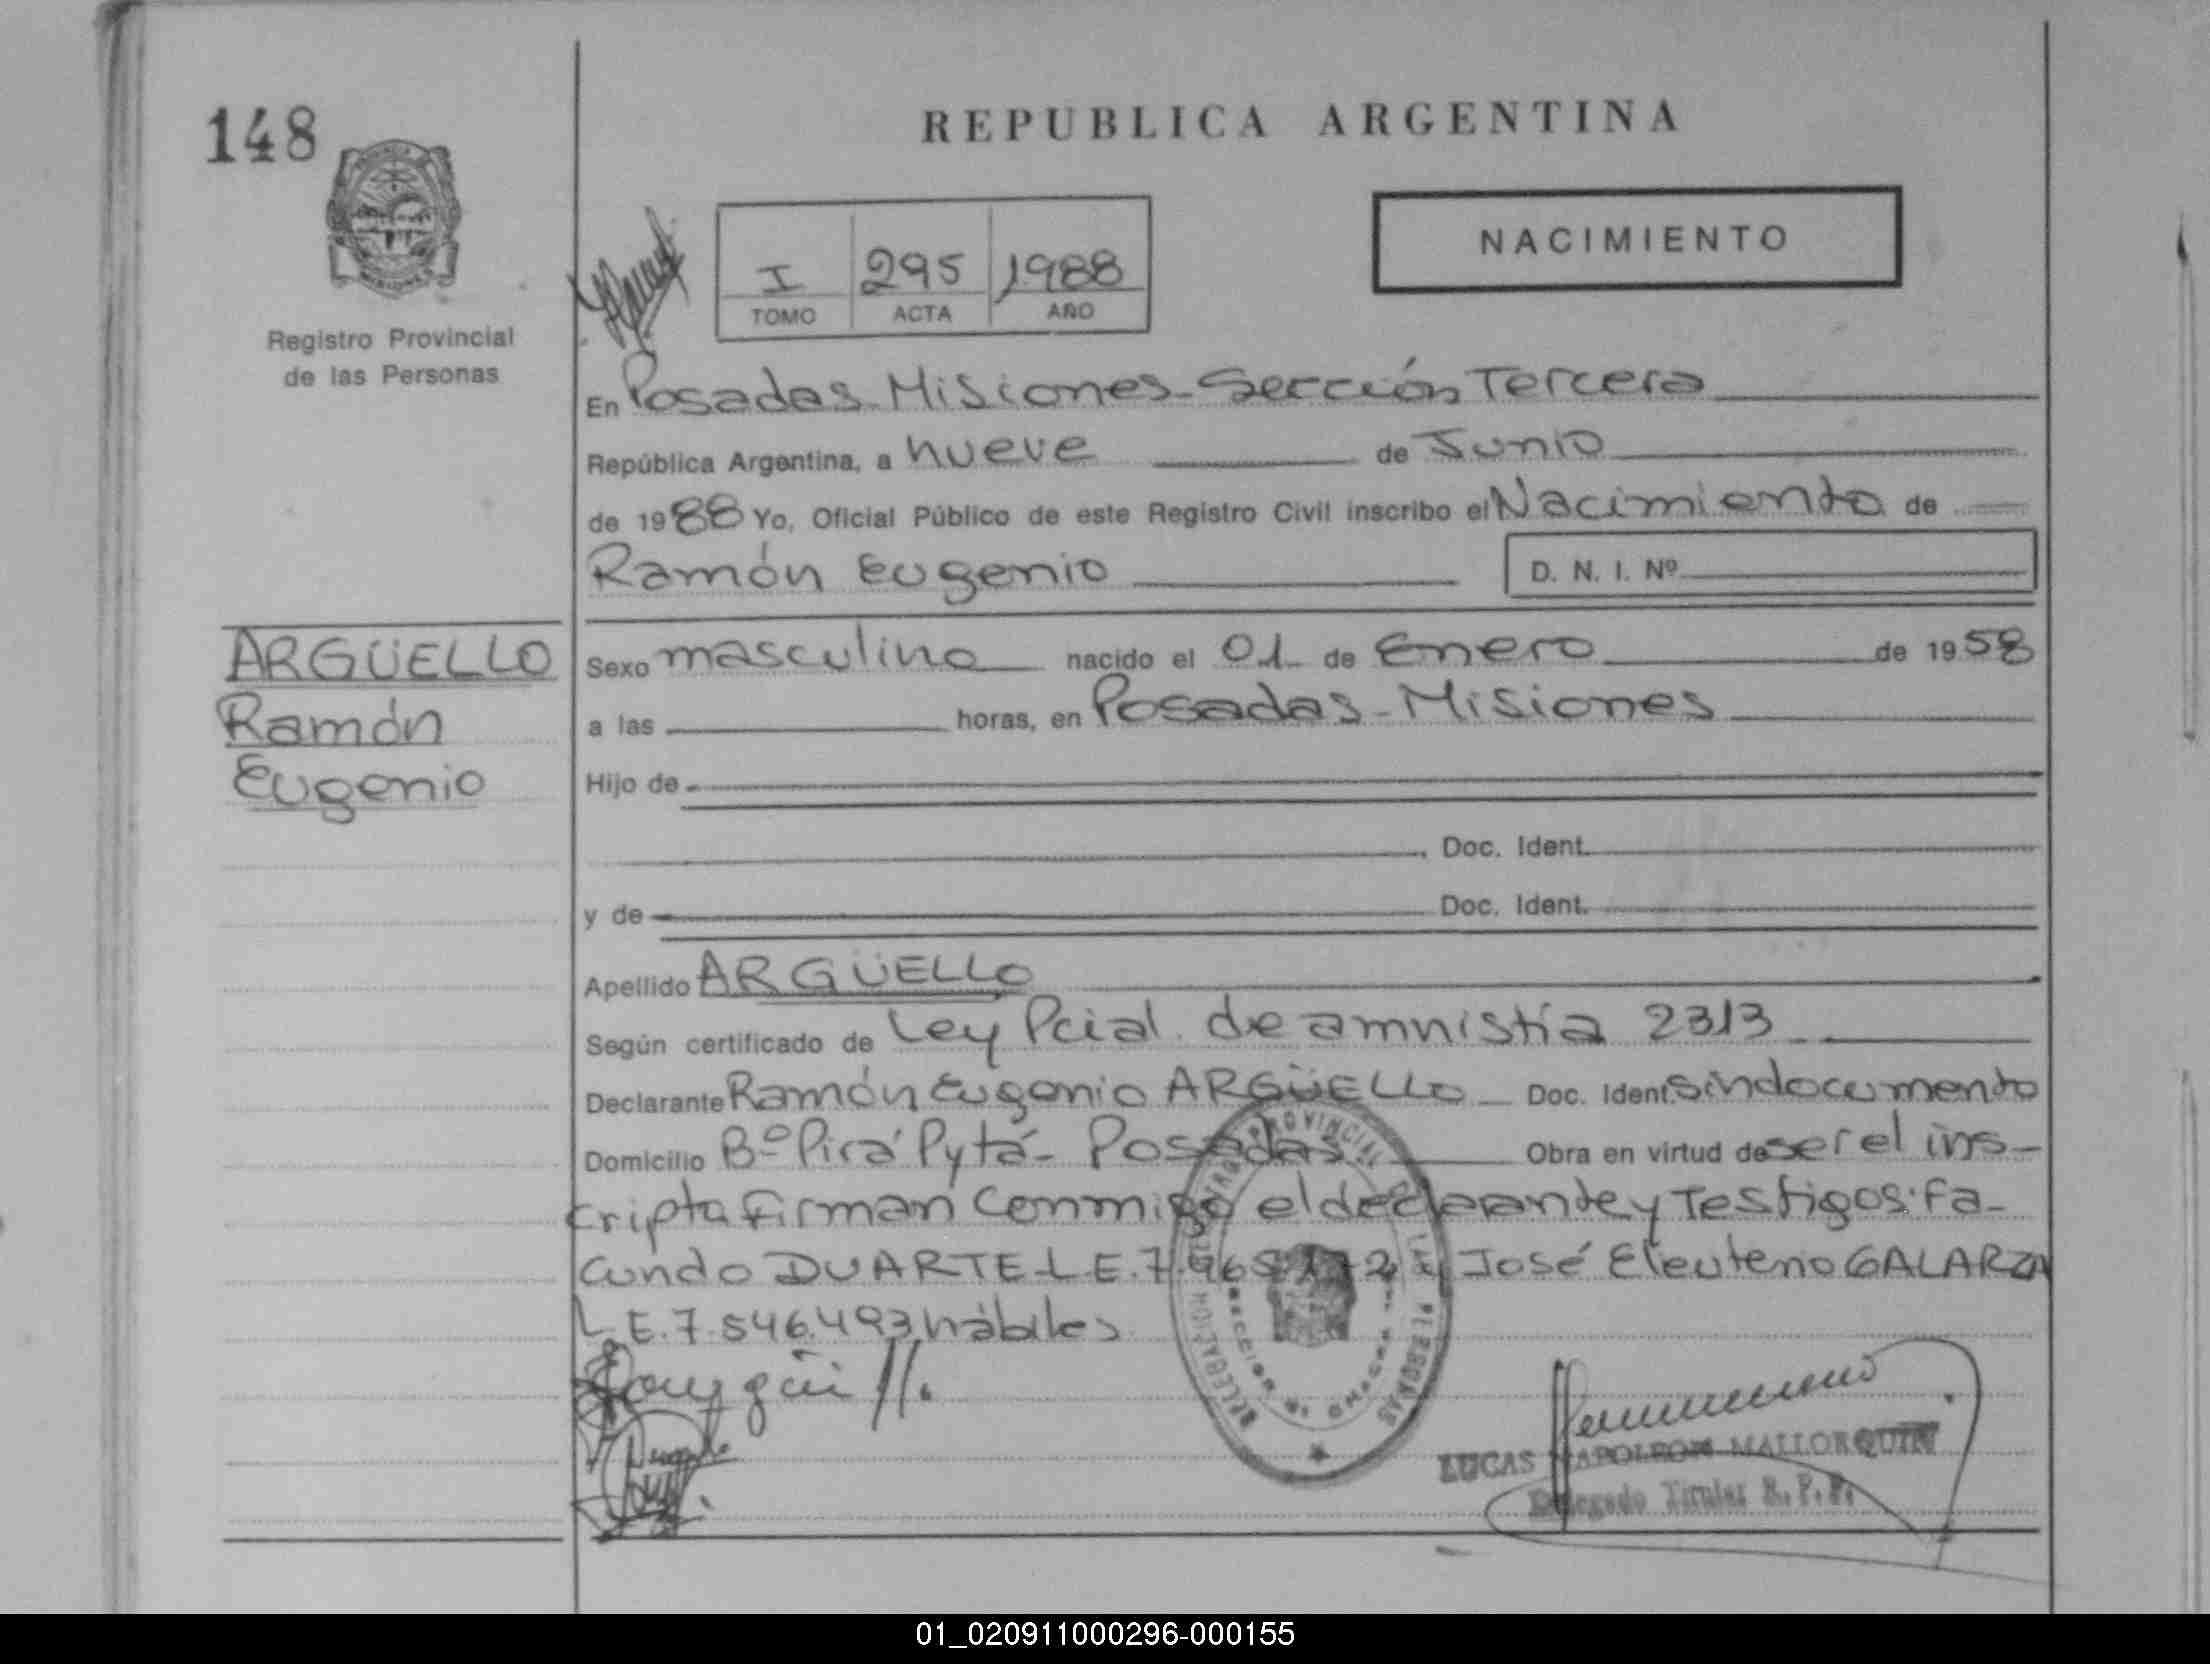 148
REPUBLICA ARGENTINA
NACIMIENTO
I 295 1988
TOMO ACTA AÑO
Registro Provincial
de las Personas
En Posadas-Misiones-Sección Tercera
República Argentina, a nueve de Junio
de 1988 Yo, Oficial Público de este Registro Civil inscribo el Nacimiento de
Ramón Eugenio D. N. I. Nº
ARGÜELLO
Ramón
Eugenio
Sexo masculino nacido el 01 de Enero de 1958
a las horas, en Posadas-Misiones
Hijo de
Doc. Ident.
y de Doc. Ident.
Apellido ARGÜELLO
Según certificado de Ley Pcial. de amnistía 2313
Declarante Ramón Eugenio ARGÜELLO Doc. Ident. sin documento
Domicilio Bº Pirá Pytá- Posadas Obra en virtud de ser el ins-
cripto firman conmigo el declarante y Testigos: Fa-
cundo DUARTE-L.E. y José Eleuterio GALARZA
L.E. 7.546.493 hábiles
LUCAS NAPOLEON MALLORQUIN
Delegado Titular R.P.P.
01_020911000296-000155